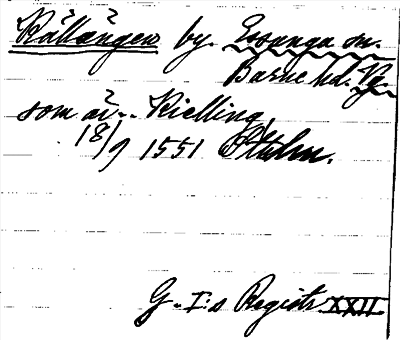 Källängen by. Essunga sn.
Barne hd. Vg.
som är.. Kielling
18/9 1551 Sthlm.
G. I:s Registr. XXII